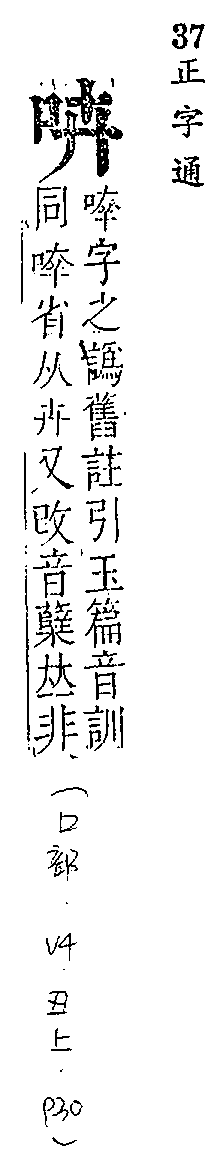 37 正字通
喯字之譌舊註引玉篇音訓
同喯省从卉又改音蘖𠀤非（口部．V4．丑上．P30）